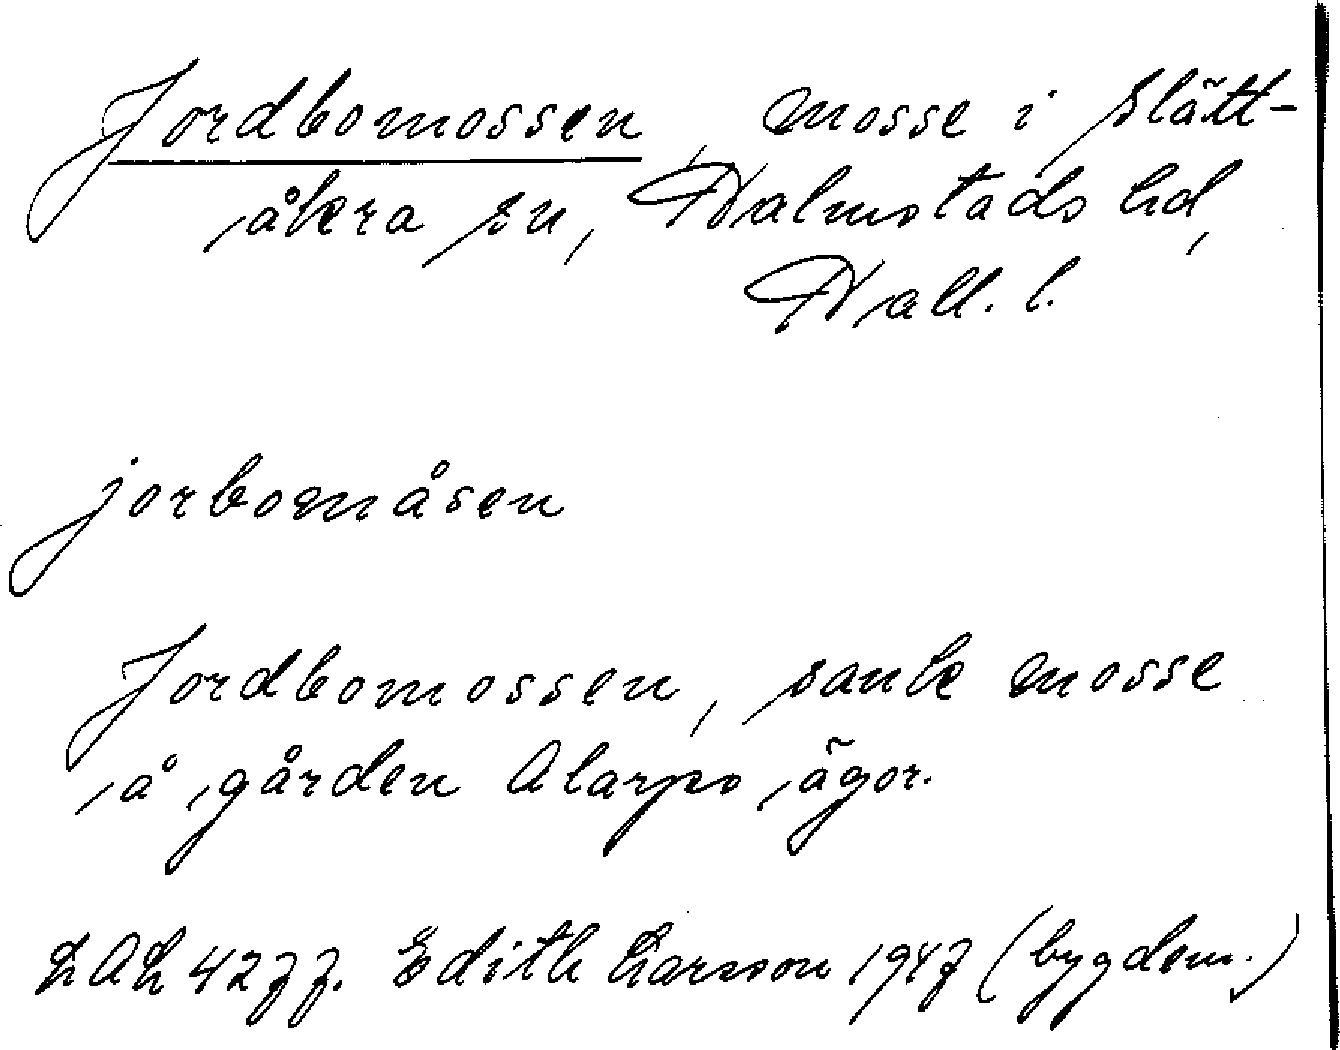 Jordbomossen, mosse i Slätt-
åkra sn, Halmstads hd,
Hall. l.
jorbomåsen
Jordbomossen, sank mosse
å gården Alarps ägor.
LAL 4277. Edith Larsson 1947 (bygdem.)